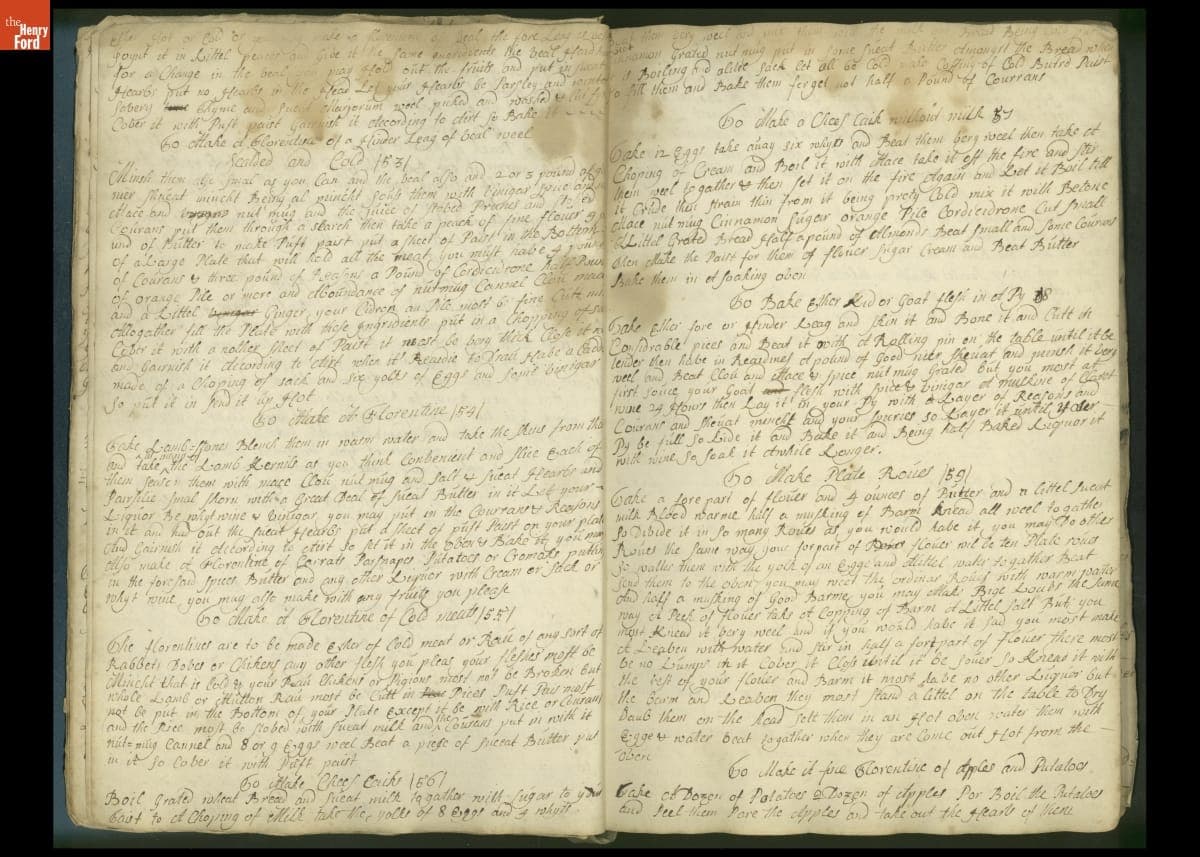 the Henry Ford
Joynt it in Littel peaces and
for a Change in the veal may Hold out the fruits and put in sweat
Hearbs put no Hearbs in the Head Let your Hearbs be Parsley and
Savery Thyme and sweat Marjorum weel picked and washed & Cut
Cober it with Pust paist Gairnish it according to Airt so Bake it
To Make a Florentine of a Hinder Leag of veal weel
Scalded and Cold 153
Minsh them als smal as you Can and the veal also and 2 or 3 pound of
nier Sheuat mincht Being al muncht
Mace and nut mug and the Juice of
Courans put them through a search then take a peack of fine flower
und of Butter to make Pust paist put a sheet of Paist in the Bottom
of a Large Plate that will hold all the meat, you must have 4 pound
of Courans & three pound of Reasons a Pound of Cordicidrone half a
of orange Pile or more and aboundance of nutmug Cannel Clou mace
and a Littel Ginger, your Cidron an Pile most be fine Cutt
Altogather fill the Plate with those Ingridients put in a Chopping of
Cober it with a nother sheet of Paist it most be bery thick Close it
and Gairnish it according to Airt when it
made of a Choping of sack and six yolks of Eggs and some vinigar
so put it in send it up Hot
To Make at Florentine 154
Take Lamb-stones Blench them in warm water and take the skins from
and take the Lamb Kernils as you think Convenient and slice Each of
them season them with mace Clou nut mug and salt & sweat Hearbs and
smal shorn with a Great Deal of sweat Butter in it Let your
Liquor Be whyt wine & Vinigar, you may put in the Courans & Reasons
in it and hid out the sweat Hearbs put a sheet of pust paist on your plate
And Gairnish it according to Airt so set it in the oben & Bake it, you may
also make a Florentine of Carrats Parsnapes Putatoes or putting
in the foresaid spices Butter and any other Liquor with Cream or sack or
whyt wine you may also make with any fruits you please
To Make a Florentine of Cold meats 155
The florentines are to be made Ether of Cold meat or Rau of any sort of
Rabbets Dobes or Chikens any other flesh you pleas your fleshes most be
Mincht that is Cold & your Rau Chikens or Pigions most not be Broken But
whole Lamb or Mutton Rau most be Cutt in Pices Pust Pais most
not be put in the Bottom of your Plate Except it be with Rice or Courans
and the Rice most be stobed with sweat milk and the Courans put in with it
nut-mug Cannel and 8 or 9 Eggs weel Beat a piece of sweat Butter put
in it so Cober it with Pust paist
To Make Chees Caiks 156
Boil Grated wheat Bread and sweat milk togather with sugar to your
taist to a Choping of Milk take the yolks of 8 Eggs and 4 whyts
Cinnamon Grated nut mug put in some sweat Butter amongst the Bread when
is Boiling and alitle sack Let all be Cold make Coffing of Cold Buterd Paist
so fill them and Bake them forget not half a Pound of Courrans
To Make a Chees Caik without milk 57
Take 12 Eggs take away six whyts and Beat them bery weel then take at
Choping of Cream and Boil it with Mace take it off the fire and stir
them weel to gather & then set it on the fire again and Let it Boil till
it Crude then strain thin from it being prety Cold mix it with Betone
mace nut mug Cinnamon Sugar orange Pile Cordicidrone Cut Small
a Littel Grated Bread Half a pound of Almonds Beat small and some Courans
then Make the Paist for them of flouer sugar Cream and Beat Butter
Bake them in at soaking oben
To Bake Ether Kid or Goat flesh in at Py 58
Take Ether fore or Hinder Leag and skin it and Bone it and Cutt it
Considrable pices and Beat it with at Rolling pin on the table until it be
tender then habe in Readines at pound of Good nier sheuat and minsh it bery
weel and Beat Clou and Mace & spice nut mug Grated But you most at
first souce your Goat flesh with spice & vinigar at mutskine of Claret
wine 24 Hours then Lay it in your Py with a Layer of Reasons and
Courans and sheuat mincht and your so Layer it until your
Py be full so Lide it and Bake it and Being half Baked Liquor it
with wine so soak it awhile Longer.
To Make Plate Roues 159
Take a fore part of flouer and 4 ounces of Butter and a littel sweat
milk Blood warme half a mutsking of Barm Knead all weel to gather
so Divide it in so many Roues as you would habe it, you may Do other
Roues the same way your forpart of flouer wil be ten Plate roues
so wallts them with the yolk of an Egge and alittel water to gather Beat
send them to the oben you may weet the ordinar Roues with warm water
And half a mutsking of Good Barme, you may Make Bige Loabs the same
way a Peek of flouer taks at Copping of Barm a Littel salt But you
most Knead it bery weel and if you would habe it sad you most make
at Leaben with water and stir in half a fortpart of flouer there most
be no Lumps in it Cober it Close until it be souer so Knead it with
the rest of your flouer and Barm it most habe no other Liquor but
the barm and Leaben they most stand a littel on the table to Dry
Daub them on the head sett them in an Hot oben water them with
Egge & water beat to gather when they are Come out Hot from the
oben
To Make at fine Florentine of Apples and Putatoes
Take at Dozen of Potatoes a Dozen of Apples Par Boil the Putatoes
and Peel them Pare the Apples and take out the Hearts of them